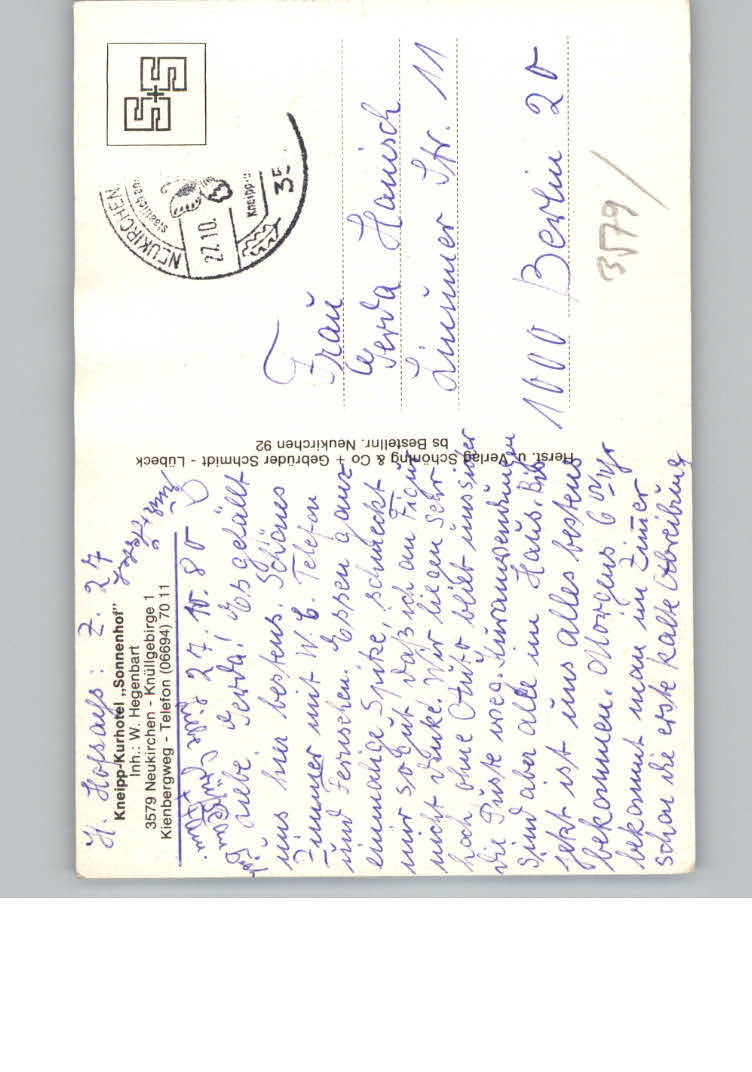 H. Hofsäß: Z. 27
Kneipp-Kurhotel „Sonnenhof"
Inh.: W. Hegenbart
3579 Neukirchen - Knüllgebirge 1
Kienbergweg - Telefon (06694) 70 11
27.10.80
Liebe Gerda! Es gefällt
uns hier bestens. Schönes
Zimmer mit W.C. Telefon
und Fernsehen. Essen ganz
einmalige Spitze, schmeckt
mir so gut daß ich an Figur
nicht denke. Wir liegen sehr
hoch ohne Auto bleibt uns sicher
die Puste weg. Kuranwendungen
sind aber alle im Haus. Bis
jetzt ist uns alles bestens
bekommen. Morgens 6 Uhr
bekommt man im Zimmer
schon die erste kalte Abreibung
Herst. u. Verlag Schöning & Co + Gebrüder Schmidt - Lübeck
bs Bestellnr. Neukirchen 92
S+S
NEUKIRCHEN
27.10.
Kneipp-
35
Frau
Gerda Hanisch
Linumer Str. 11
1000 Berlin 20
3579/